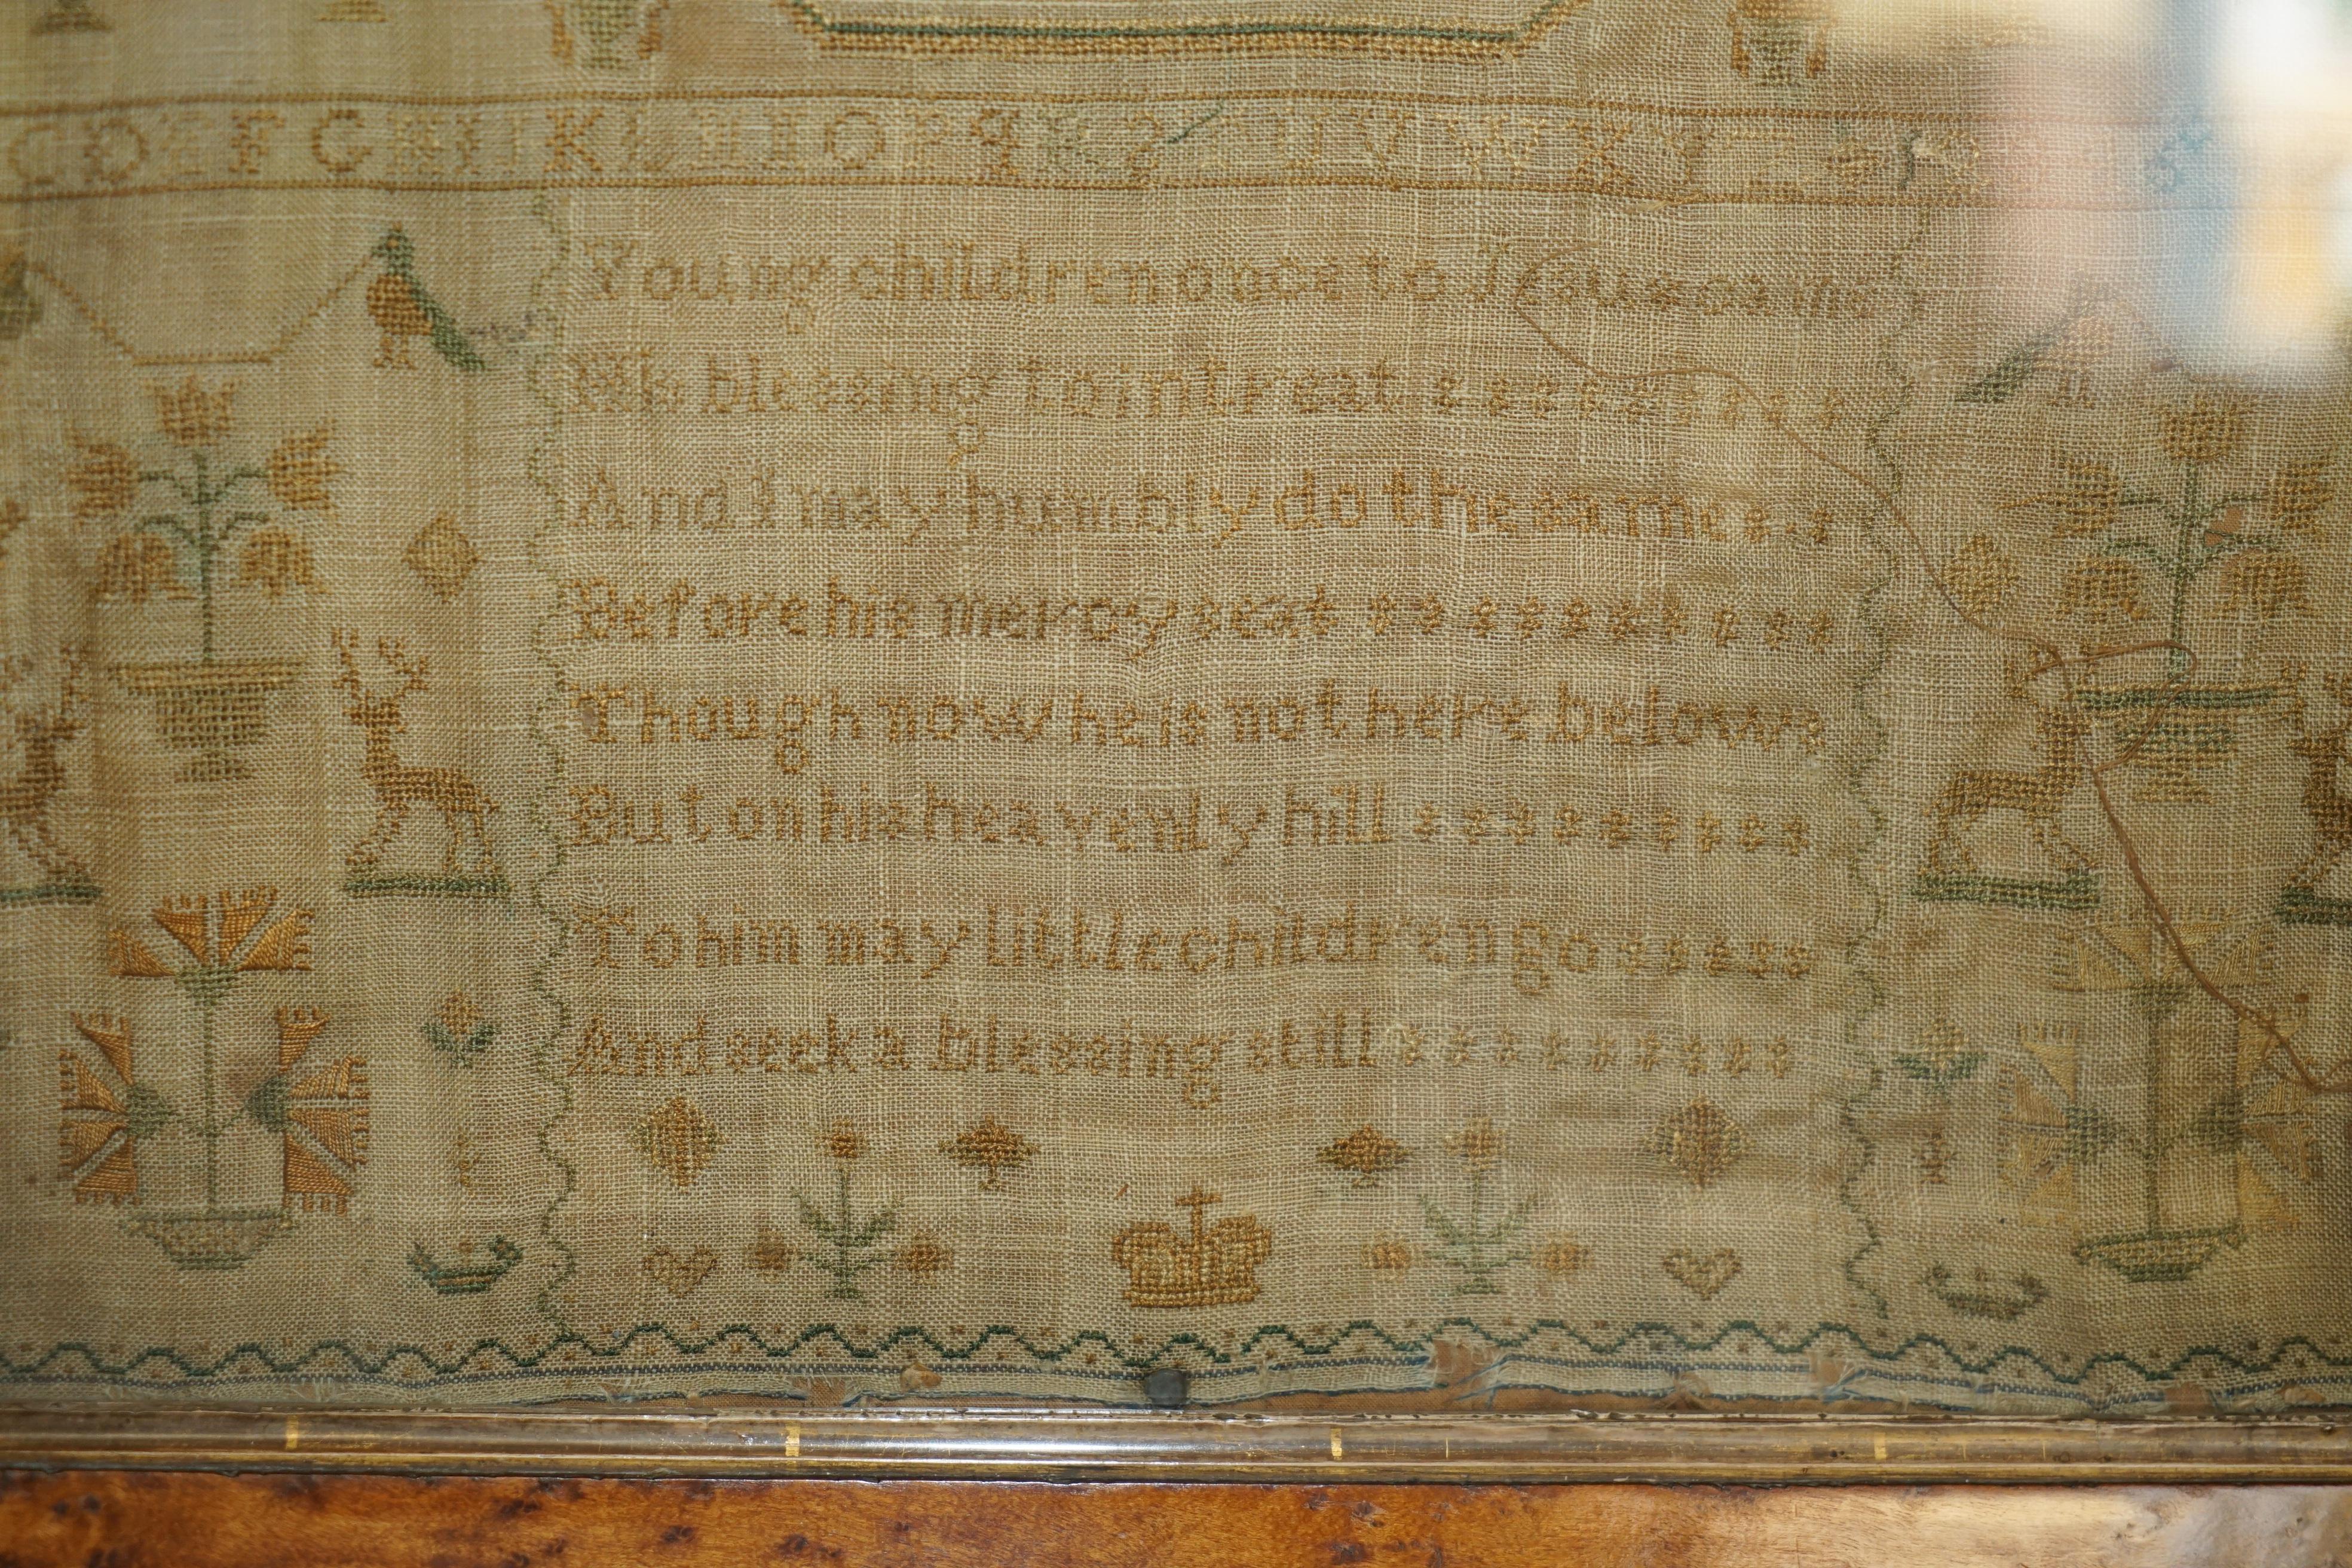 C D E F G H I J K L I O P Q R S U V W X Y
Young children once to Jesus came
His blessing to intreat
And I may humbly do the same
Before his mercy seat
Though now he is not here below
But on his heavenly hill
To him may little children go
And seek a blessing still